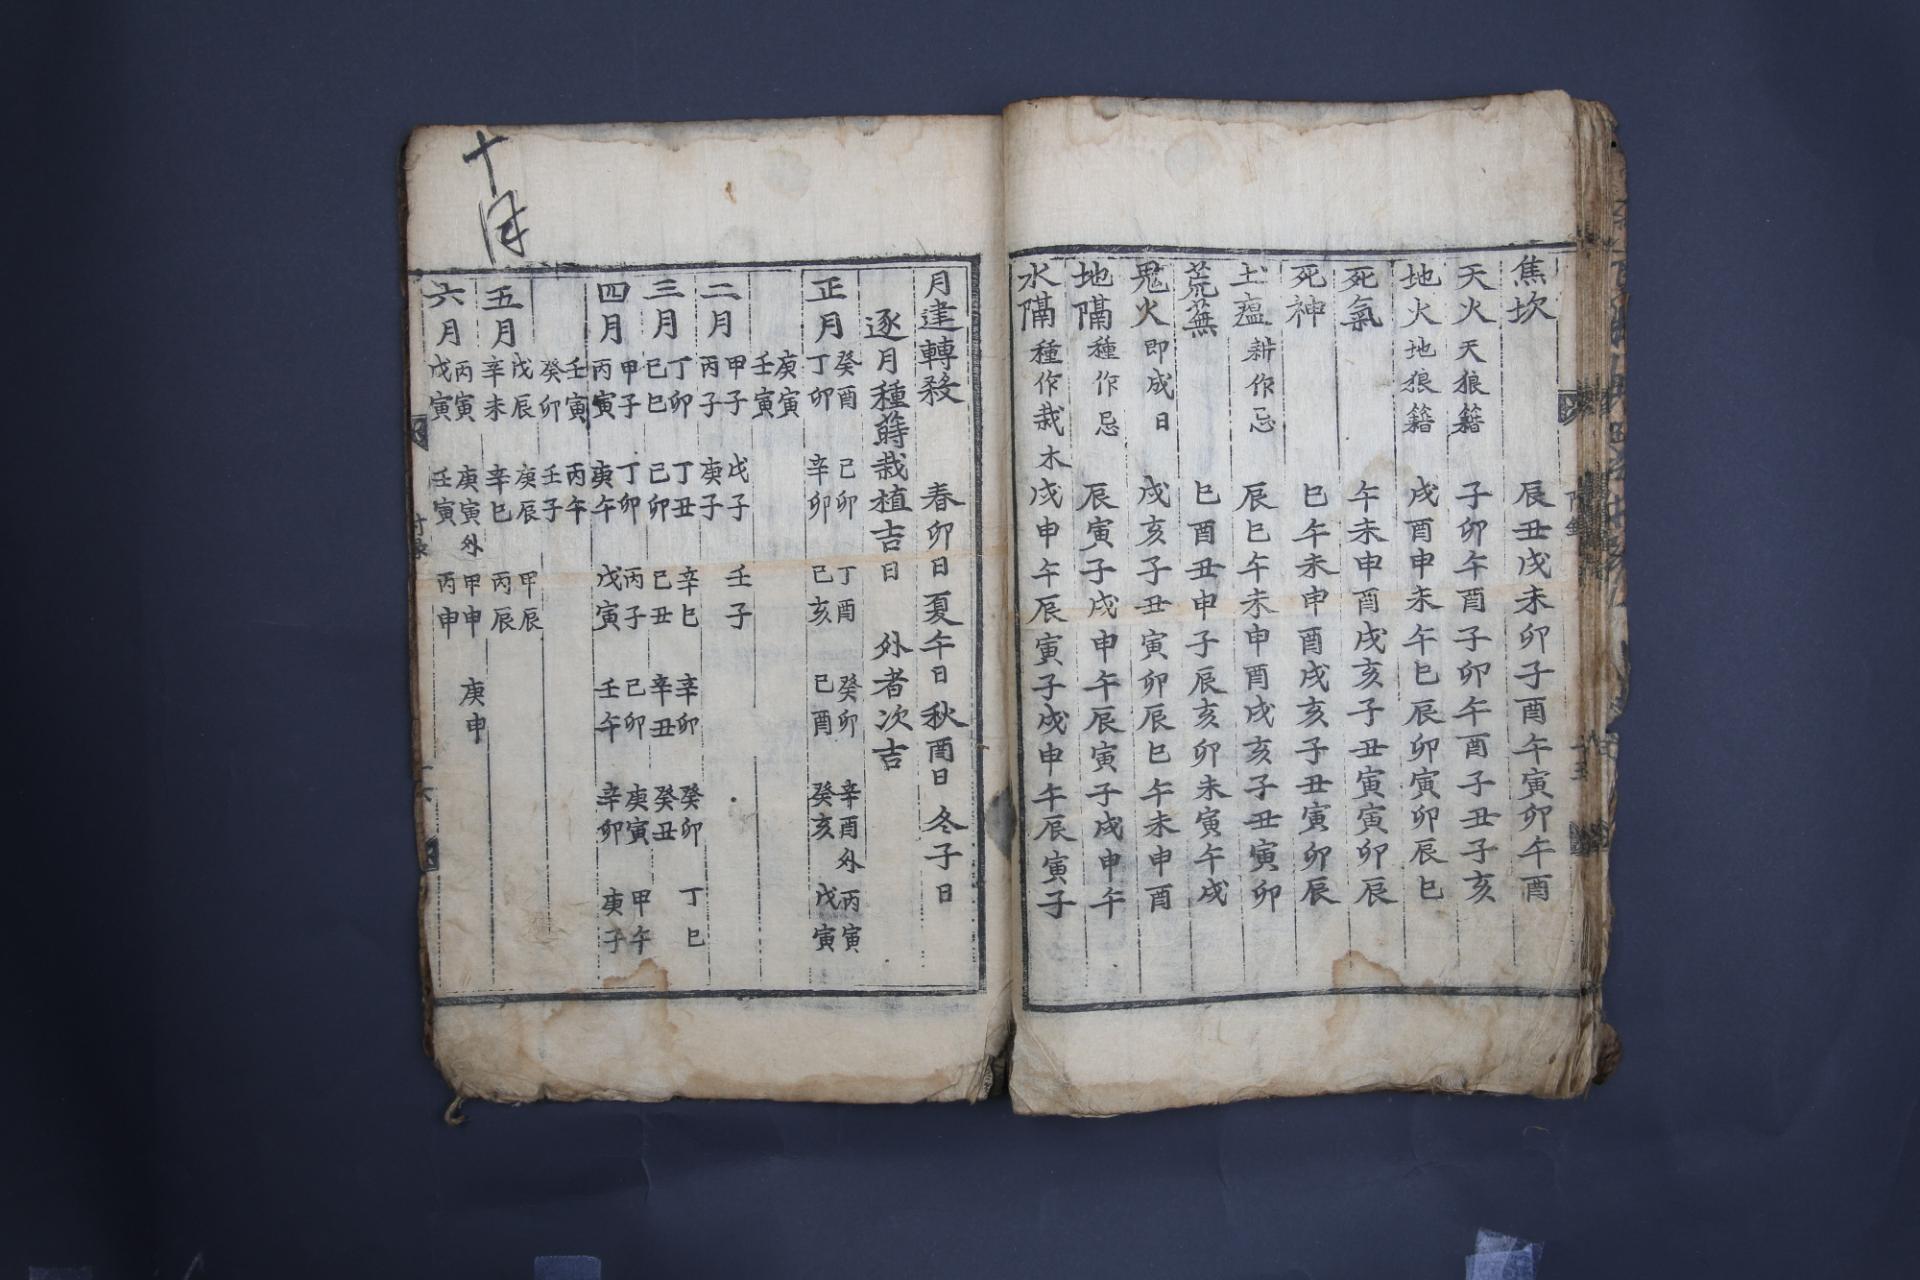 焦坎 辰丑戌未卯子酉午寅卯午酉
天火天狼籍 子卯午酉子卯午酉子丑子亥
地火地狼籍 戌酉申未午巳辰卯寅卯辰巳
死氣 午未申酉戌亥子丑寅寅卯辰
死神 巳午未申酉戌亥子丑寅卯辰
土瘟耕作忌 辰巳午未申酉戌亥子丑寅卯
荒蕪 巳酉丑申子辰亥卯未寅午戌
鬼火即成日 戌亥子丑寅卯辰巳午未申酉
地隔種作忌 辰寅子戌申午辰寅子戌申午
水隔種作栽木 戌申午辰寅子戌申午辰寅子
月建轉殺 春卯日夏午日秋酉日冬子日
逐月種蒔栽植吉日 外者次吉
正月 癸酉 己卯 丁酉 癸卯 辛酉外丙寅
丁卯 辛卯 己亥 己酉 癸亥 戊寅
庚寅
壬寅
二月 甲子 戊子 壬子
丙子 庚子
三月 丁卯 丁丑 辛巳 辛卯 癸卯 丁巳
己巳 己卯 己丑 辛丑 癸丑
四月 甲子 丁卯 丙子 己卯 庚寅 甲午
丙寅 庚午 戊寅 壬午 辛卯 庚子
壬寅 丙午
癸卯 壬子
五月 戊辰 庚辰 甲辰
辛未 辛巳 丙辰
六月 丙寅 庚寅外甲申 庚申
戊寅 壬寅 丙申
十月